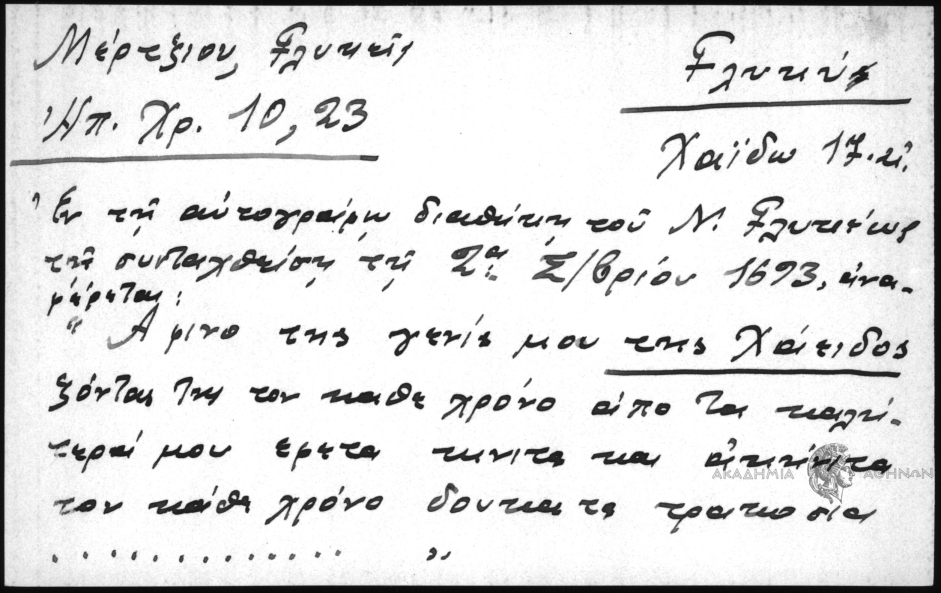 Μέρτζιου, Γλυκεῖς
Γλυκύς
Ἠπ. Χρ. 10, 23
Χαϊδω 17. αἰ.
Ἐν τῇ αὐτογράφῳ διαθήκῃ τοῦ Ν. Γλυκέως
τῇ συνταχθείσῃ τῇ 2ᾳ Σ/βρίου 1693, ἀνα-
φέρεται:
" Αφινο της γενίς μου της Χάειδος
ζόντας της τον καθε χρόνο ἀπο τα καλή-
τερά μου ερετα κινιτα και ἀκινήτα
τον κάθε χρόνο δουκατα τρακοσια
. . . . . . . . . . . . . . "
ΑΚΑΔΗΜΙΑ ΑΘΗΝΩΝ